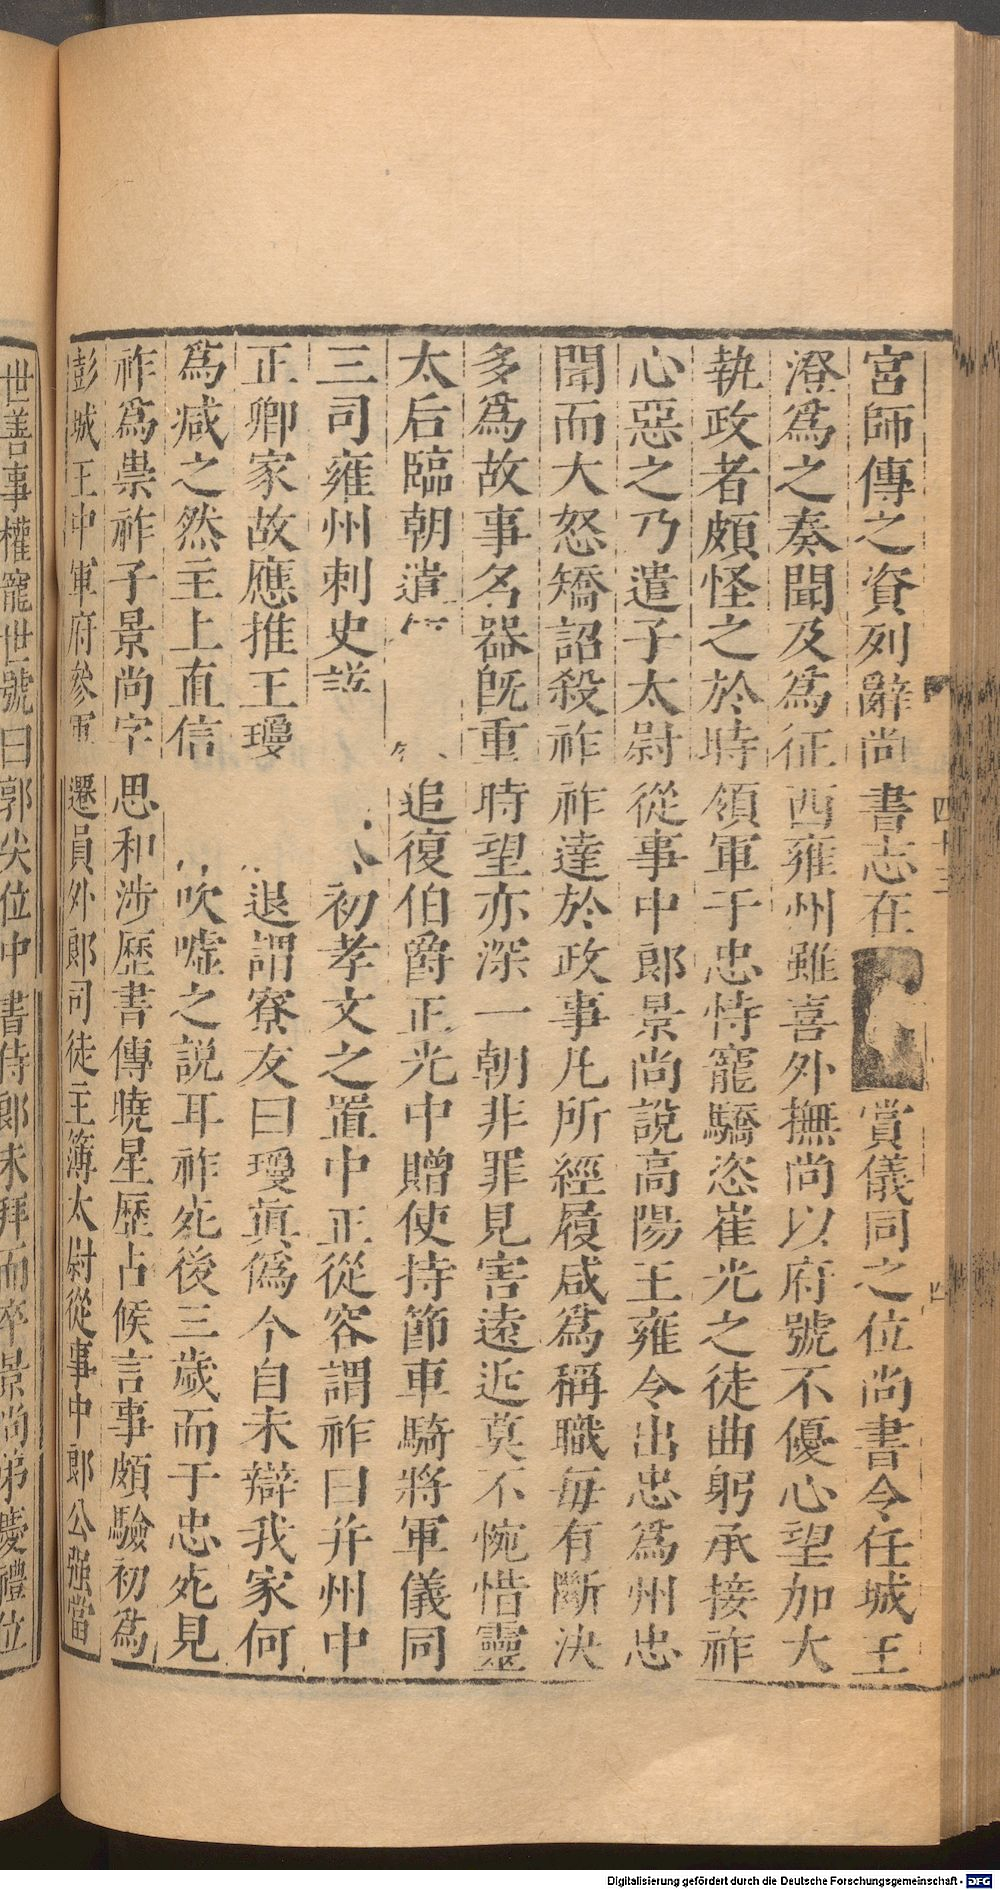 宮師傅之資列辭尚書志在賞儀同之位尚書令任城王
澄爲之奏聞及爲征西雍州雖喜外撫尚以府號不優心望加大
執政者頗怪之於時領軍于忠恃寵驕恣崔光之徒曲躬承接祚
心惡之乃遣子太尉從事中郎景尚說高陽王雍令出忠爲州忠
聞而大怒矯詔殺祚祚達於政事凡所經履咸爲稱職每有斷決
多爲故事名器旣重時望亦深一朝非罪見害遠近莫不惋惜靈
太后臨朝遣追復伯爵正光中贈使持節車騎將軍儀同
三司雍州刺史謚初孝文之置中正從容謂祚曰并州中
正卿家故應推王瓊退謂寮友曰瓊眞僞今自未辯我家何
爲減之然主上直信吹噓之説耳祚死後三歲而于忠死見
祚爲祟祚子景尚字思和涉歷書傳曉星歷占候言事頗驗初爲
彭城王中軍府參軍遷員外郎司徒主簿太尉從事中郎公强當
世善事權寵世號曰郭尖位中書侍郎未拜而卒景尚弟慶禮位
四十三
Digitalisierung gefördert durch die Deutsche Forschungsgemeinschaft - DFG